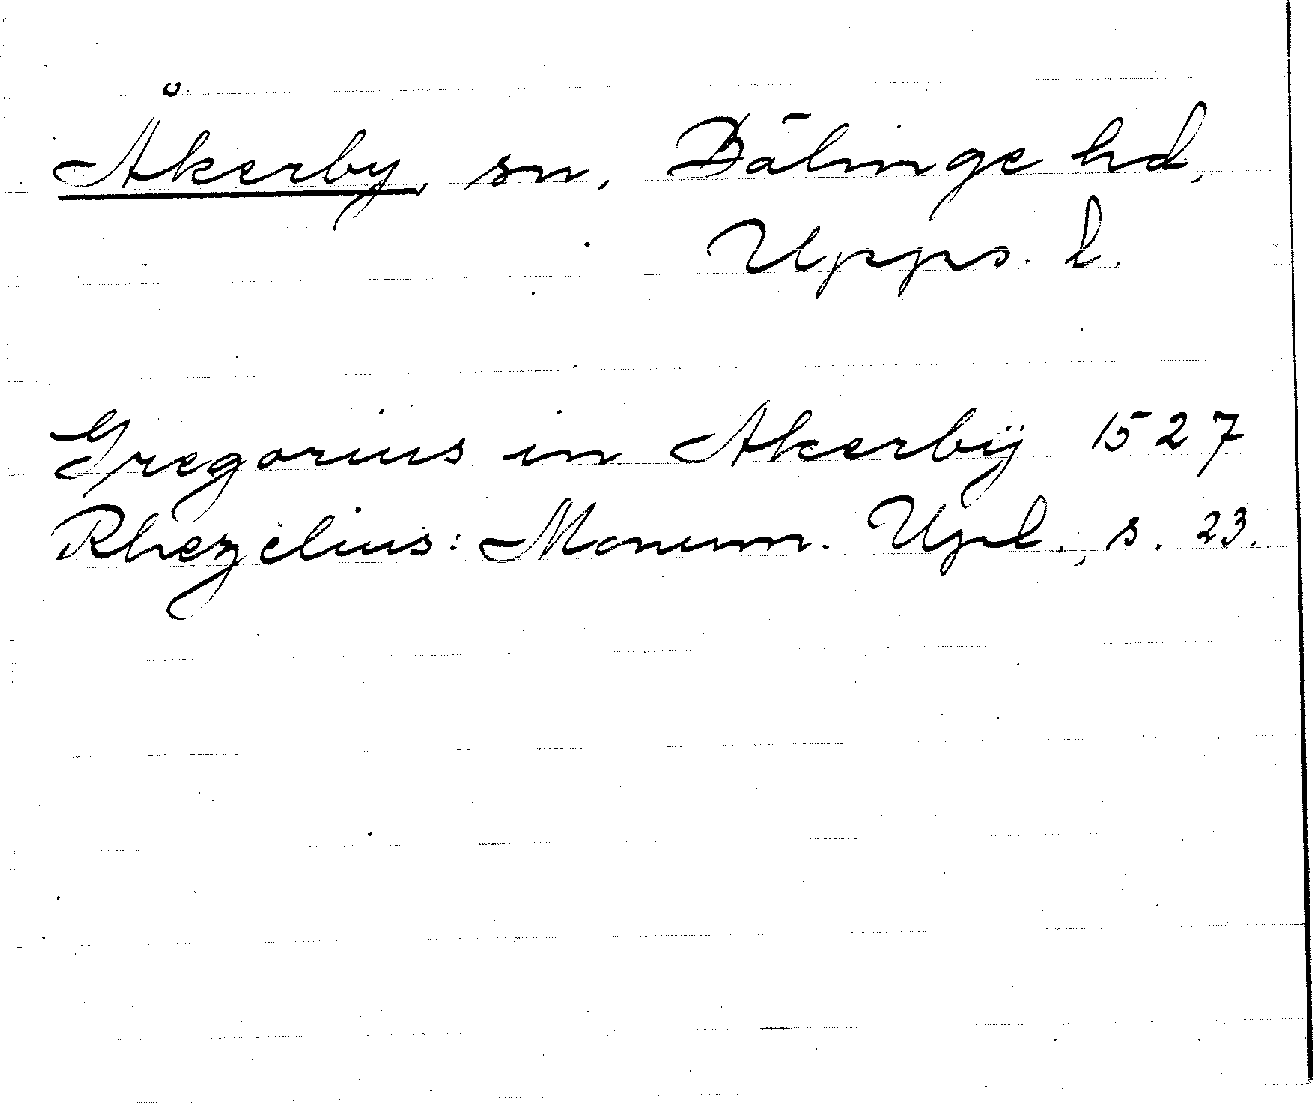 Åkerby, sn, Bälinge hd,
Upps. l.
Gregorius in Akerbÿ 1527
Rhezelius: Monum. Upl., s. 23.